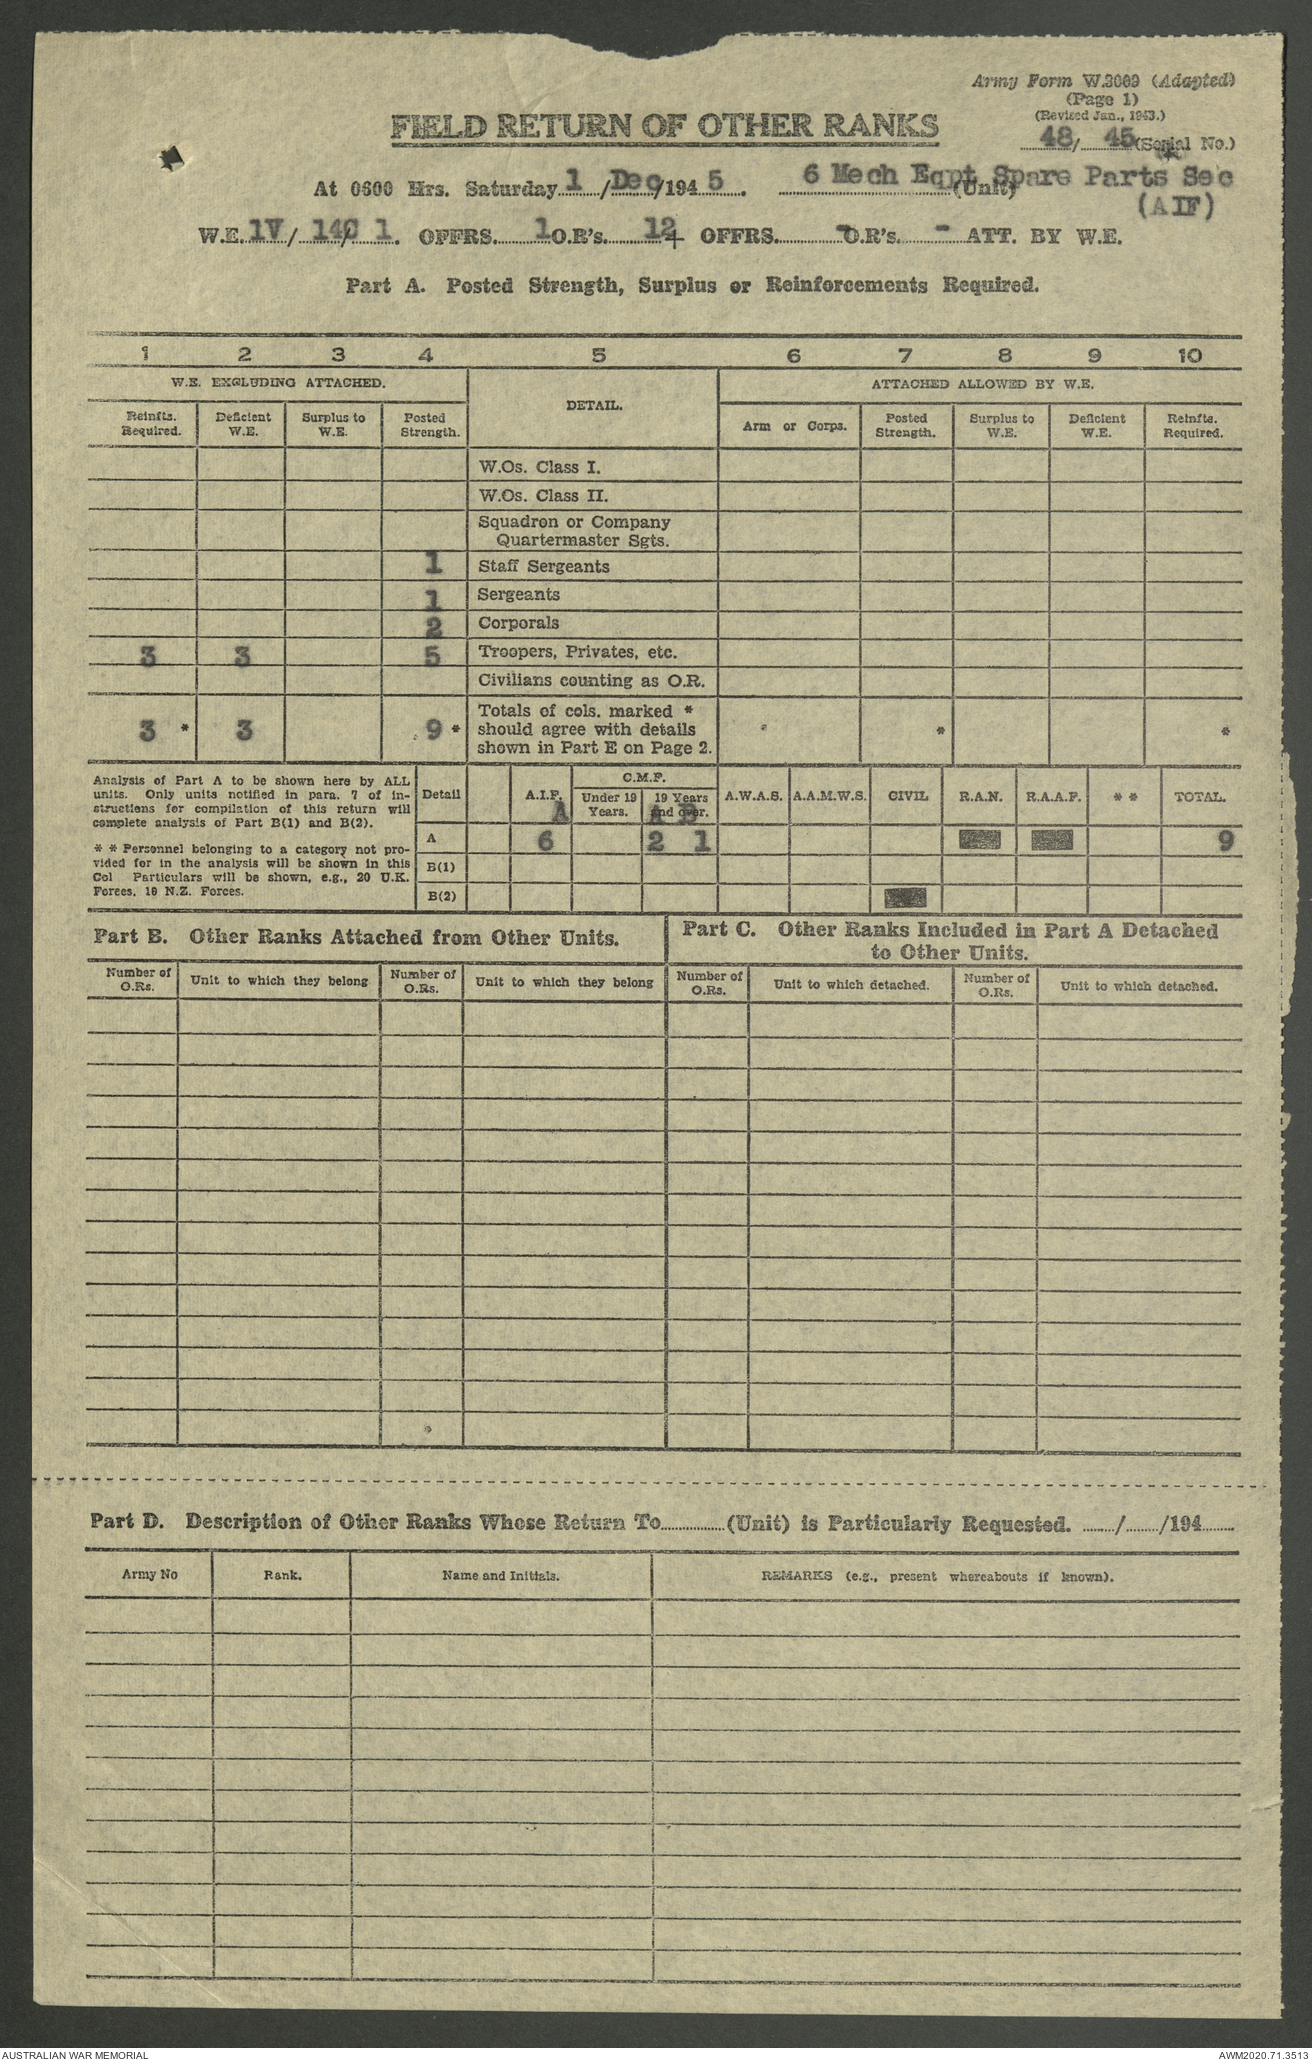 Army Form W.3009 (Adapted)
(Page 1)
(Revised Jan., 1943.)
FIELD RETURN OF OTHER RANKS
48/ 45 (Serial No.)
At 0600 Hrs. Saturday 1 /Dec/194 5. 6 Mech Eqpt Spare Parts Sec (Unit)
(AIF)
W.E. 1V/ 14C/ 1. OFFRS. 1 O.R's. 12 + OFFRS. - O.R's. - ATT. BY W.E.
Part A. Posted Strength, Surplus or Reinforcements Required.
1 2 3 4 5 6 7 8 9 10
W.E. EXCLUDING ATTACHED. DETAIL. ATTACHED ALLOWED BY W.E.
Reinfts. Required. Deficient W.E. Surplus to W.E. Posted Strength. Arm or Corps. Posted Strength. Surplus to W.E. Deficient W.E. Reinfts. Required.
W.Os. Class I.
W.Os. Class II.
Squadron or Company
Quartermaster Sgts.
1 Staff Sergeants
1 Sergeants
2 Corporals
3 3 5 Troopers, Privates, etc.
Civilians counting as O.R.
Totals of cols. marked *
3 * 3 9 * should agree with details * *
shown in Part E on Page 2.
Analysis of Part A to be shown here by ALL
units. Only units notified in para. 7 of in-
structions for compilation of this return will
complete analysis of Part B(1) and B(2).
* * Personnel belonging to a category not pro-
vided for in the analysis will be shown in this
Col Particulars will be shown, e.g., 20 U.K.
Forces, 10 N.Z. Forces.
C.M.F.
Detail A.I.F. Under 19 Years. 19 Years and over. A.W.A.S. A.A.M.W.S. CIVIL R.A.N. R.A.A.F. * * TOTAL.
A A B
A 6 2 1 9
B(1)
B(2)
Part B. Other Ranks Attached from Other Units.
Part C. Other Ranks Included in Part A Detached
to Other Units.
Number of O.Rs. Unit to which they belong Number of O.Rs. Unit to which they belong Number of O.Rs. Unit to which detached. Number of O.Rs. Unit to which detached.
Part D. Description of Other Ranks Whose Return To............(Unit) is Particularly Requested. ....../....../194......
Army No Rank. Name and Initials. REMARKS (e.g., present whereabouts if known).
AUSTRALIAN WAR MEMORIAL AWM2020.71.3513